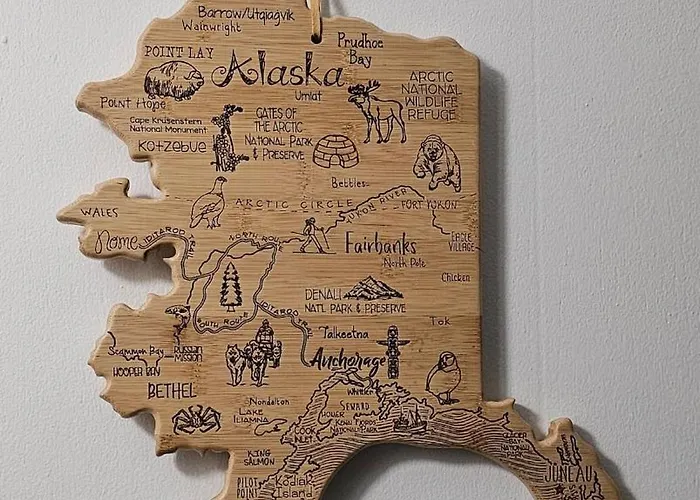 Barrow/Utqiagvik
Wainwright
Prudhoe
Bay
POINT LAY
Alaska
Umiat
ARCTIC
NATIONAL
WILDLIFE
REFUGE
Point Hope
Cape Krusenstern
National Monument
KOTZEBUE
GATES OF
THE ARCTIC
NATIONAL PARK
& PRESERVE
Bettles
ARCTIC CIRCLE
YUKON RIVER
FORT YUKON
WALES
Nome
IDITAROD TRAIL
NORTH ROUTE
Fairbanks
North Pole
EAGLE
VILLAGE
Chicken
DENALI
NAT'L PARK & PRESERVE
SOUTH ROUTE
IDITAROD TRAIL
Talkeetna
Tok
Scammon Bay
RUSSIAN
MISSION
HOOPER BAY
Anchorage
BETHEL
Whittier
Nondalton
LAKE
ILIAMNA
SEWARD
HOMER
KENAI FJORDS
NATIONAL PARK
COOK
INLET
GLACIER
BAY
NATIONAL
KING
SALMON
JUNEAU
PILOT
POINT
Kodiak
Island